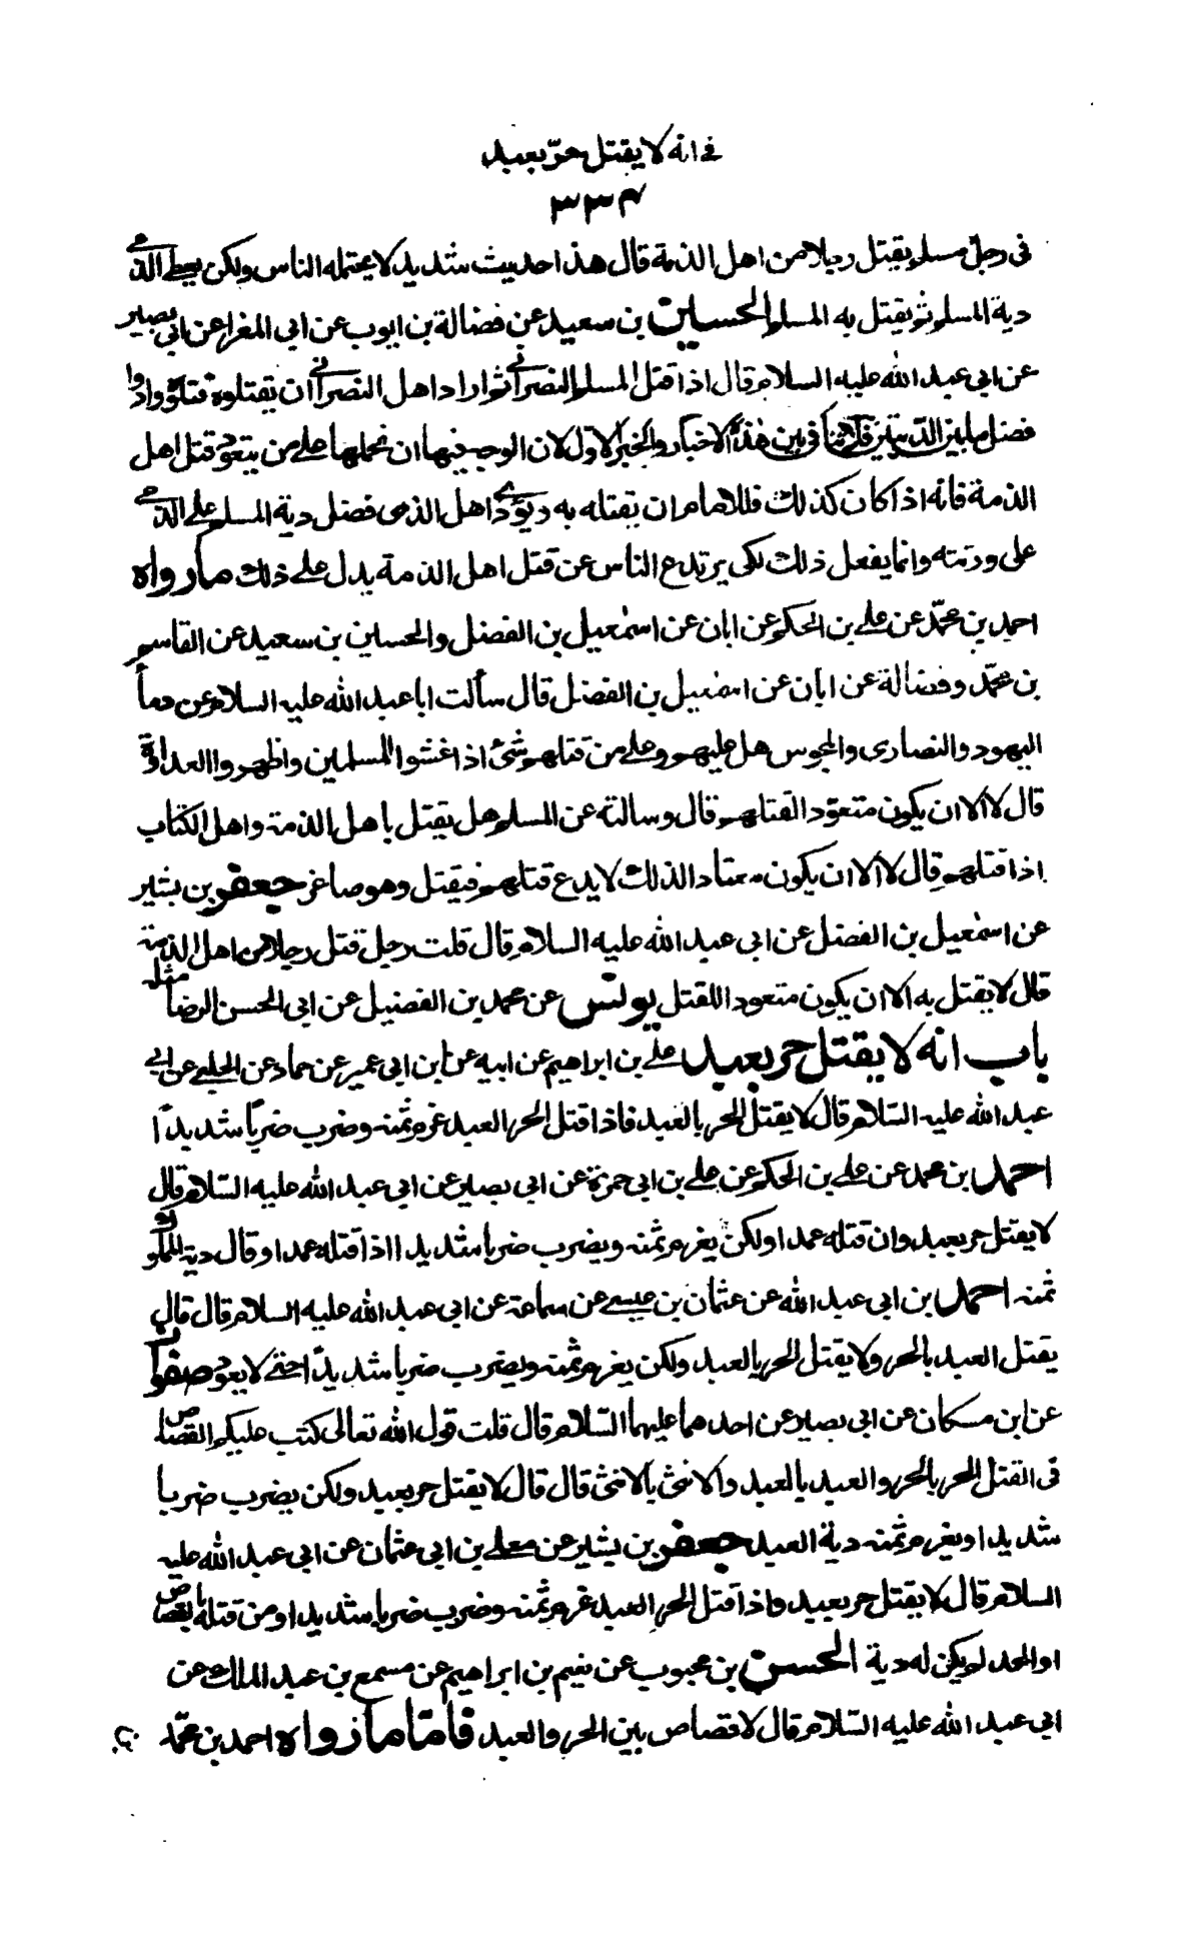 في انه لا يقتل حرّ بعبد
٣٣٤
في رجل مسلم يقتل رجلا من اهل الذمة قال هذا حديث شديد لا يحتمله الناس ولكن يعطى الذمي
دية المسلم ثم يقتل به المسلم الحسين بن سعيد عن فضالة بن ايوب عن ابي المغرا عن ابي بصير
عن ابي عبد الله عليه السلام قال اذا قتل المسلم النصراني ثم اراد اهل النصراني ان يقتلوه قتلوه وادوا
فضل ما بين الديتين فلا تنافي بين هذه الاخبار والخبر الاول لان الوجه فيها ان نحملها على من يتعود قتل اهل
الذمة فانه اذا كان كذلك فللامام ان يقتله به ويؤدي اهل الذمى فضل دية المسلم على الذمي
على ورثته وانما يفعل ذلك لكى يرتدع الناس عن قتل اهل الذمة يدل على ذلك ما رواه
احمد بن محمّد عن على بن الحكم عن ابان عن اسمٰعيل بن الفضل والحسين بن سعيد عن القاسم
بن محمّد وفضالة عن ابان عن اسمٰعيل بن الفضل قال سألت ابا عبد الله عليه السلام عن دماء
اليهود والنصارى والمجوس هل عليهم وعلى من قتلهم شئ اذا غشوا المسلمين واظهروا العداوة
قال لا الا ان يكون متعوّدا لقتلهم قال وسالته عن المسلم هل يقتل باهل الذمة واهل الكتاب
اذا قتلهم قال لا الا ان يكون معتادا لذلك لا يدع قتلهم فيقتل وهو صاغر جعفر بن بشير
عن اسمٰعيل بن الفضل عن ابى عبد الله عليه السلام قال قلت رجل قتل رجلا من اهل الذمة
قال لا يقتل به الا ان يكون متعودا للقتل يونس عن محمد بن الفضيل عن ابى الحسن الرضا مثله
باب انه لا يقتل حر بعبد على بن ابراهيم عن ابيه عن ابن ابى عمير عن حماد عن الحلبى عن ابي
عبد الله عليه السّلام قال لا يقتل الحر بالعبد فاذا قتل الحر العبد غرم ثمنه وضرب ضربًا شديدًا
احمد بن محمد عن على بن الحكم عن على بن ابى حمزة عن ابى بصير عن ابى عبد الله عليه السّلام قال
لا يقتل حر بعبد وان قتله عمدا ولكن يغرم ثمنه ويضرب ضربا شديدا اذا قتله عمدا وقال دية المملوك
ثمنه احمد بن ابى عبد الله عن عثمان بن عيسى عن سماعة عن ابى عبد الله عليه السلام قال قال
يقتل العبد بالحر ولا يقتل الحر بالعبد ولكن يغرم ثمنه ويضرب ضربا شديدًا حتى لا يعود صفوان
عن ابن مسكان عن ابى بصير عن احدهما عليهما السّلام قال قلت قول الله تعالى كتب عليكم القصاص
فى القتلى الحر بالحر والعبد بالعبد والانثى بالانثى قال قال لا يقتل حر بعبد ولكن يضرب ضربا
شديدا ويغرم ثمنه دية العبد جعفر بن بشير عن معلى بن ابى عثمان عن ابى عبد الله عليه
السلام قال لا يقتل حر بعبد واذا قتل الحر العبد غرم ثمنه وضرب ضربا شديدا ومن قتله بالقصاص
او الحد لم يكن له دية الحسن بن محبوب عن نعيم بن ابراهيم عن مسمع بن عبد الملك عن
ابى عبد الله عليه السّلام قال لا قصاص بين الحر والعبد فامّا ما رواه احمد بن محمّد بن